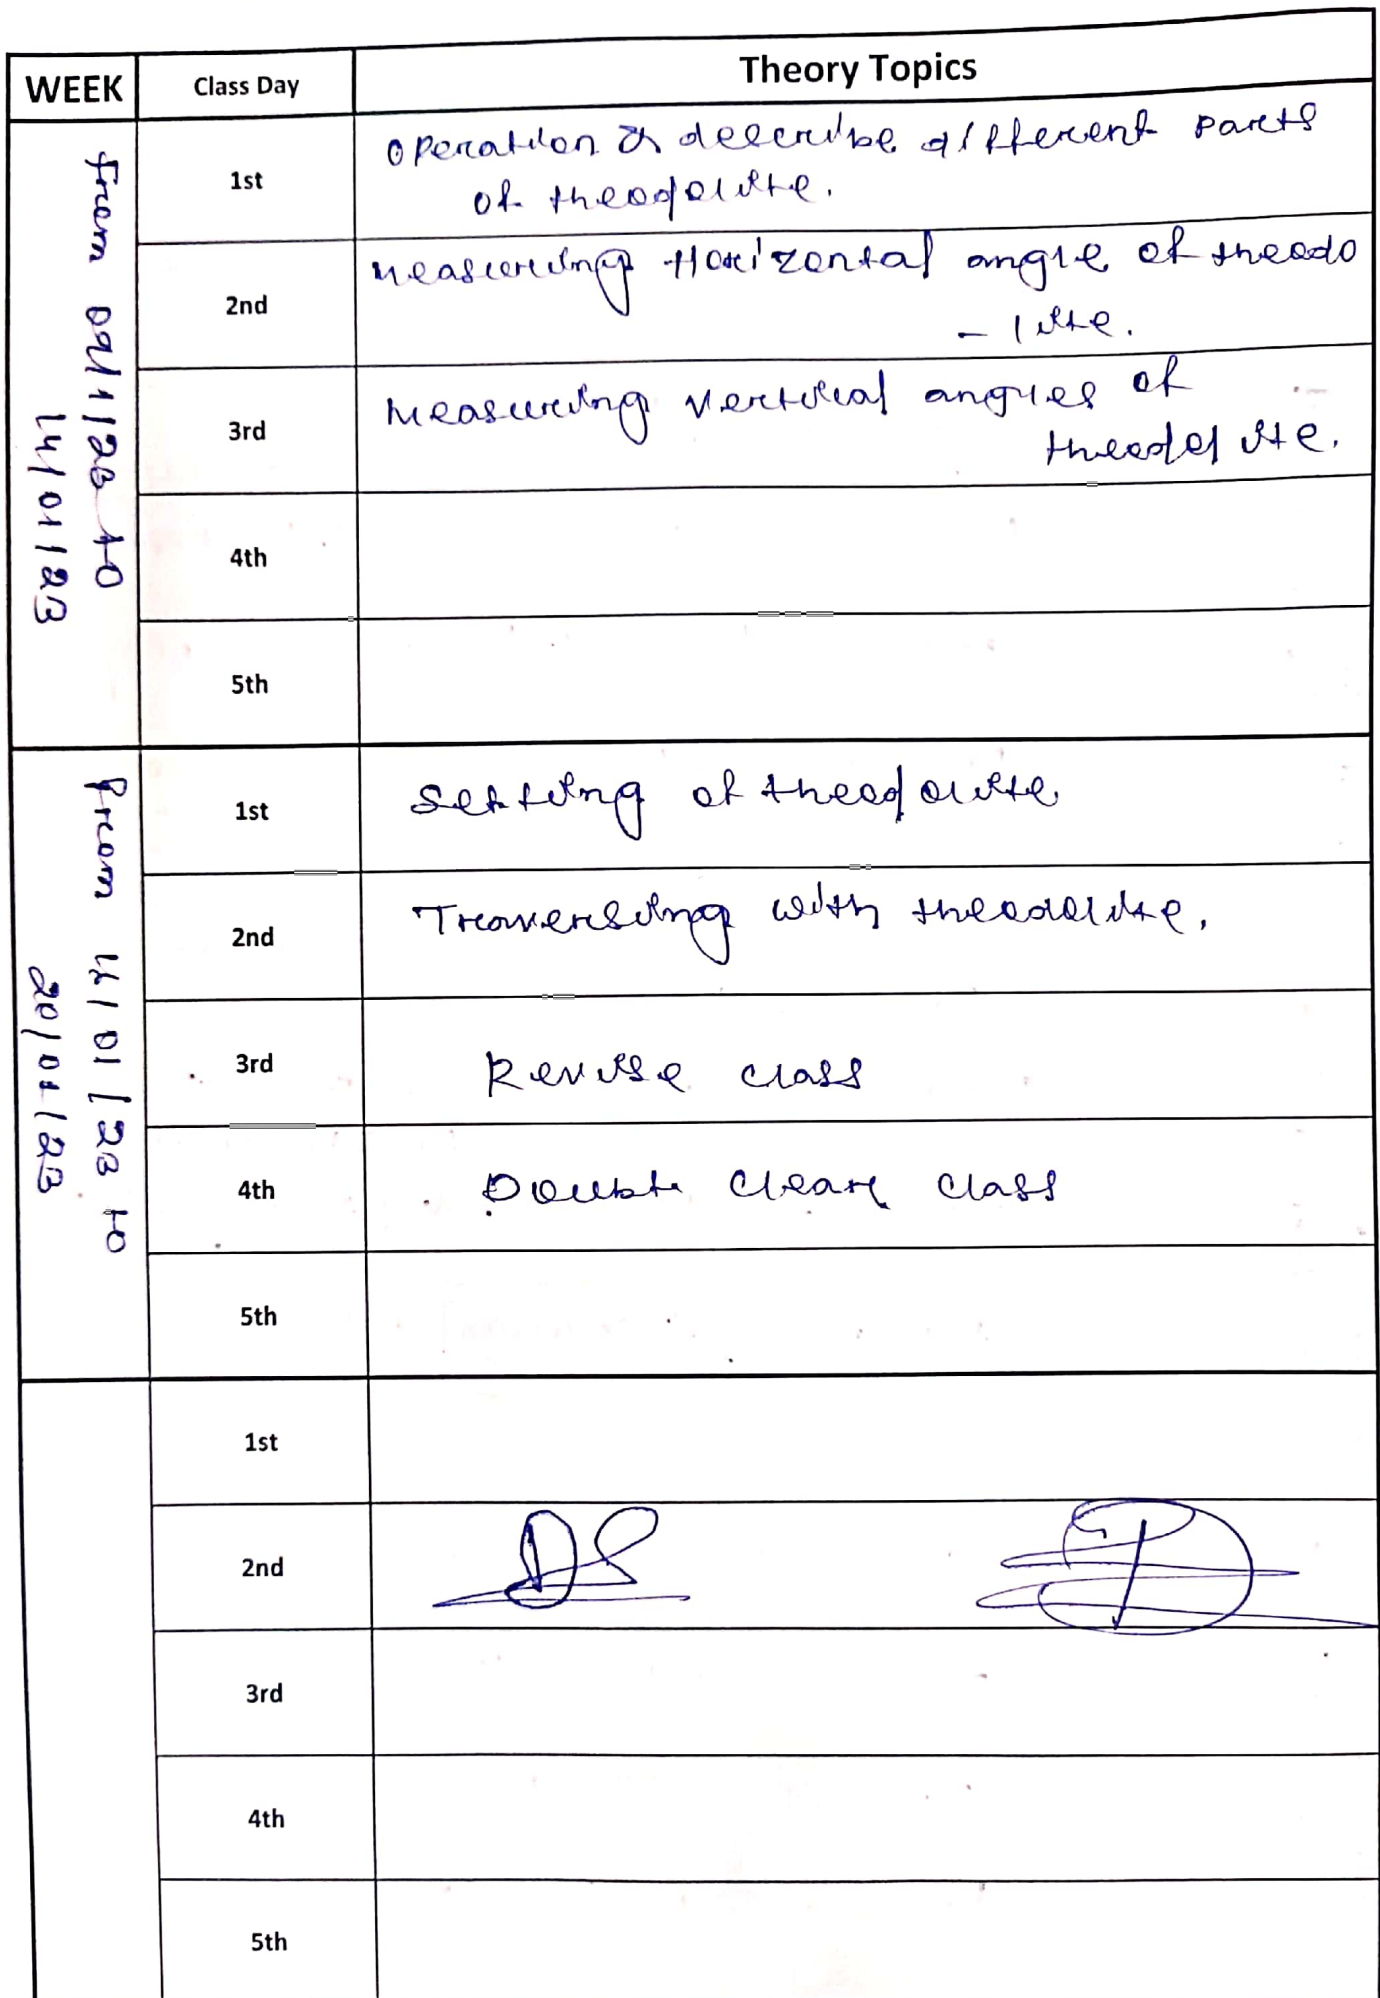 WEEK Class Day Theory Topics
From 09/1/23 to
14/01/23
1st
Operation & describe different parts
of theodolite.
2nd
Measuring Horizontal angle of theodo
- lite.
3rd
Measuring vertical angles of
theodolite.
4th
5th
From 14/01/23 to
20/01/23
1st
Setting of theodolite
2nd
Traversing with theodolite.
3rd
Revise class
4th
Doubt clear class
5th
1st
2nd
3rd
4th
5th